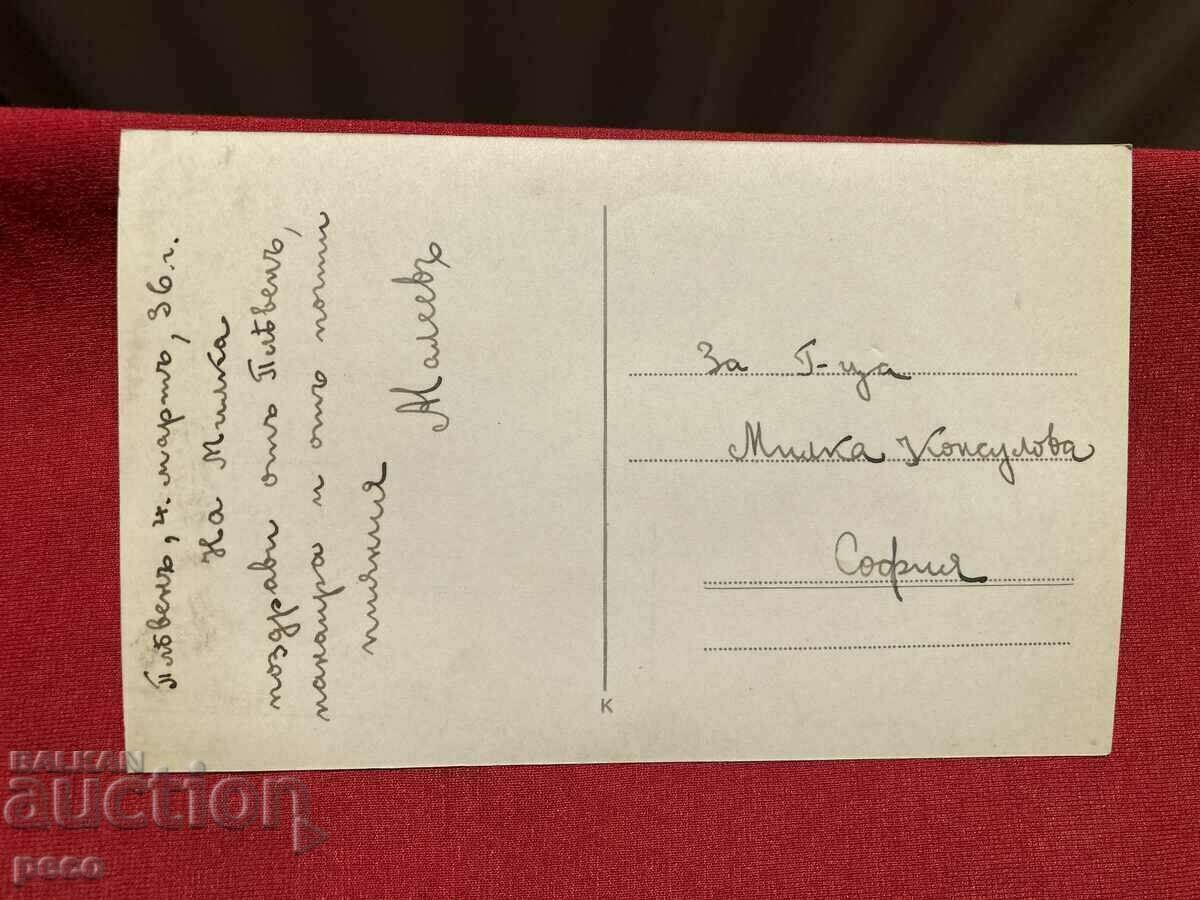 Плѣвенъ, 4. мартъ, 36 г.
На Милка
поздрави отъ Плѣвенъ,
панаира и отъ почти
пияния
Малеевъ
За Г-ца
Милка Консулова
София
К
BALKAN
auction
peco